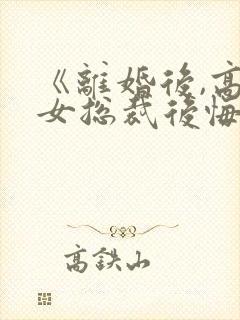 《離婚後,高
女总裁後悔
高鉄山